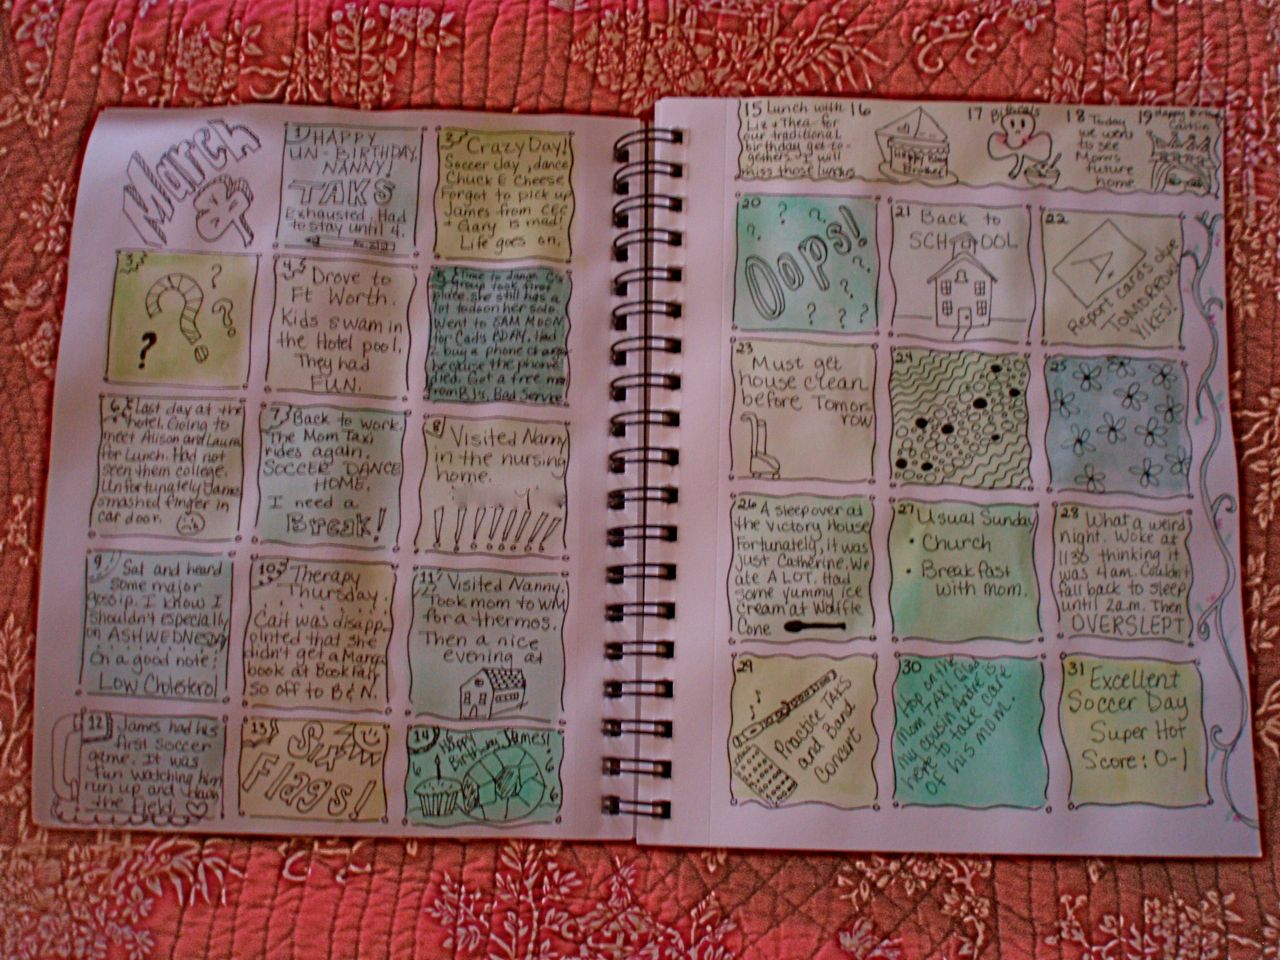 March
1 HAPPY
UN-BIRTHDAY,
NANNY!
TAKS
Exhausted. Had
to stay until 4.
2 Crazy Day!
Soccer, day, dance
Chuck E Cheese
Forgot to pick up
James from CEC
+ Gary is mad!
Life goes on.
3
? ? ?
?
4 Drove to
Ft Worth.
Kids swam in
the Hotel pool.
They had
FUN.
5 Time to dance. Co
Group took first
place, she still has a
lot to do on her solo.
Went to SAM MOON
for Cait's BDAY. Had
2 buy a phone charger
because the phone
died. Got a free
from BJs. Bad Service
6 Last day at the
hotel. Going to
meet Alison and Laura
for Lunch. Had not
seen them college.
Unfortunately James
smashed finger in
car door.
7 Back to work.
The Mom Taxi
rides again.
SOCCER DANCE
HOME.
I need a
BREAK!
8 Visited Nanny
in the nursing
home.
! ! ! ! ! ! ! ! !
9 Sat and heard
some major
gossip. I know I
shouldn't especially
on ASH WEDNESDAY
On a good note:
Low Cholesterol
10 Therapy
Thursday
Cait was disapp-
ointed that she
didn't get a Manga
book at Book fair
So off to B&N.
11 Visited Nanny.
Took mom to WM
for a thermos.
Then a nice
evening at
12 James had his
first soccer
game. It was
fun watching him
run up and down
the field.
13 Six
Flags!
14 Happy
Birthday James!
6 6
6 6
15 Lunch with
Liz + Thea for
our traditional
birthday get-to-
gethers. I will
miss those lunches
16
Happy Bday
Brother
17
18 Today
we went
to see
Mom's
future
home
19 Happy Birthday
Caitlin
20 ? ?
?
Oops!
? ? ? ? ? ?
21 Back to
SCHOOL
22
A
Report cards due
TOMORROW!
YIKES!
23
Must get
house clean
before Tomor-
row
24
25
26 A sleepover at
the Victory House
Fortunately, it was
just Catherine. We
ate A LOT. Had
some yummy ice
cream at Waffle
Cone
27 Usual Sunday
• Church
• Breakfast
with mom.
28 What a weird
night. Woke at
1138 thinking it
was 4am. Couldn't
fall back to sleep
until 2am. Then
OVERSLEPT
29
Practice TAKS
and Band
Concert
30
Hop on the
Mom TAXI. Glad
my cousin Andre is
here to take care
of his mom.
31 Excellent
Soccer Day
Super Hot
Score: 0-1